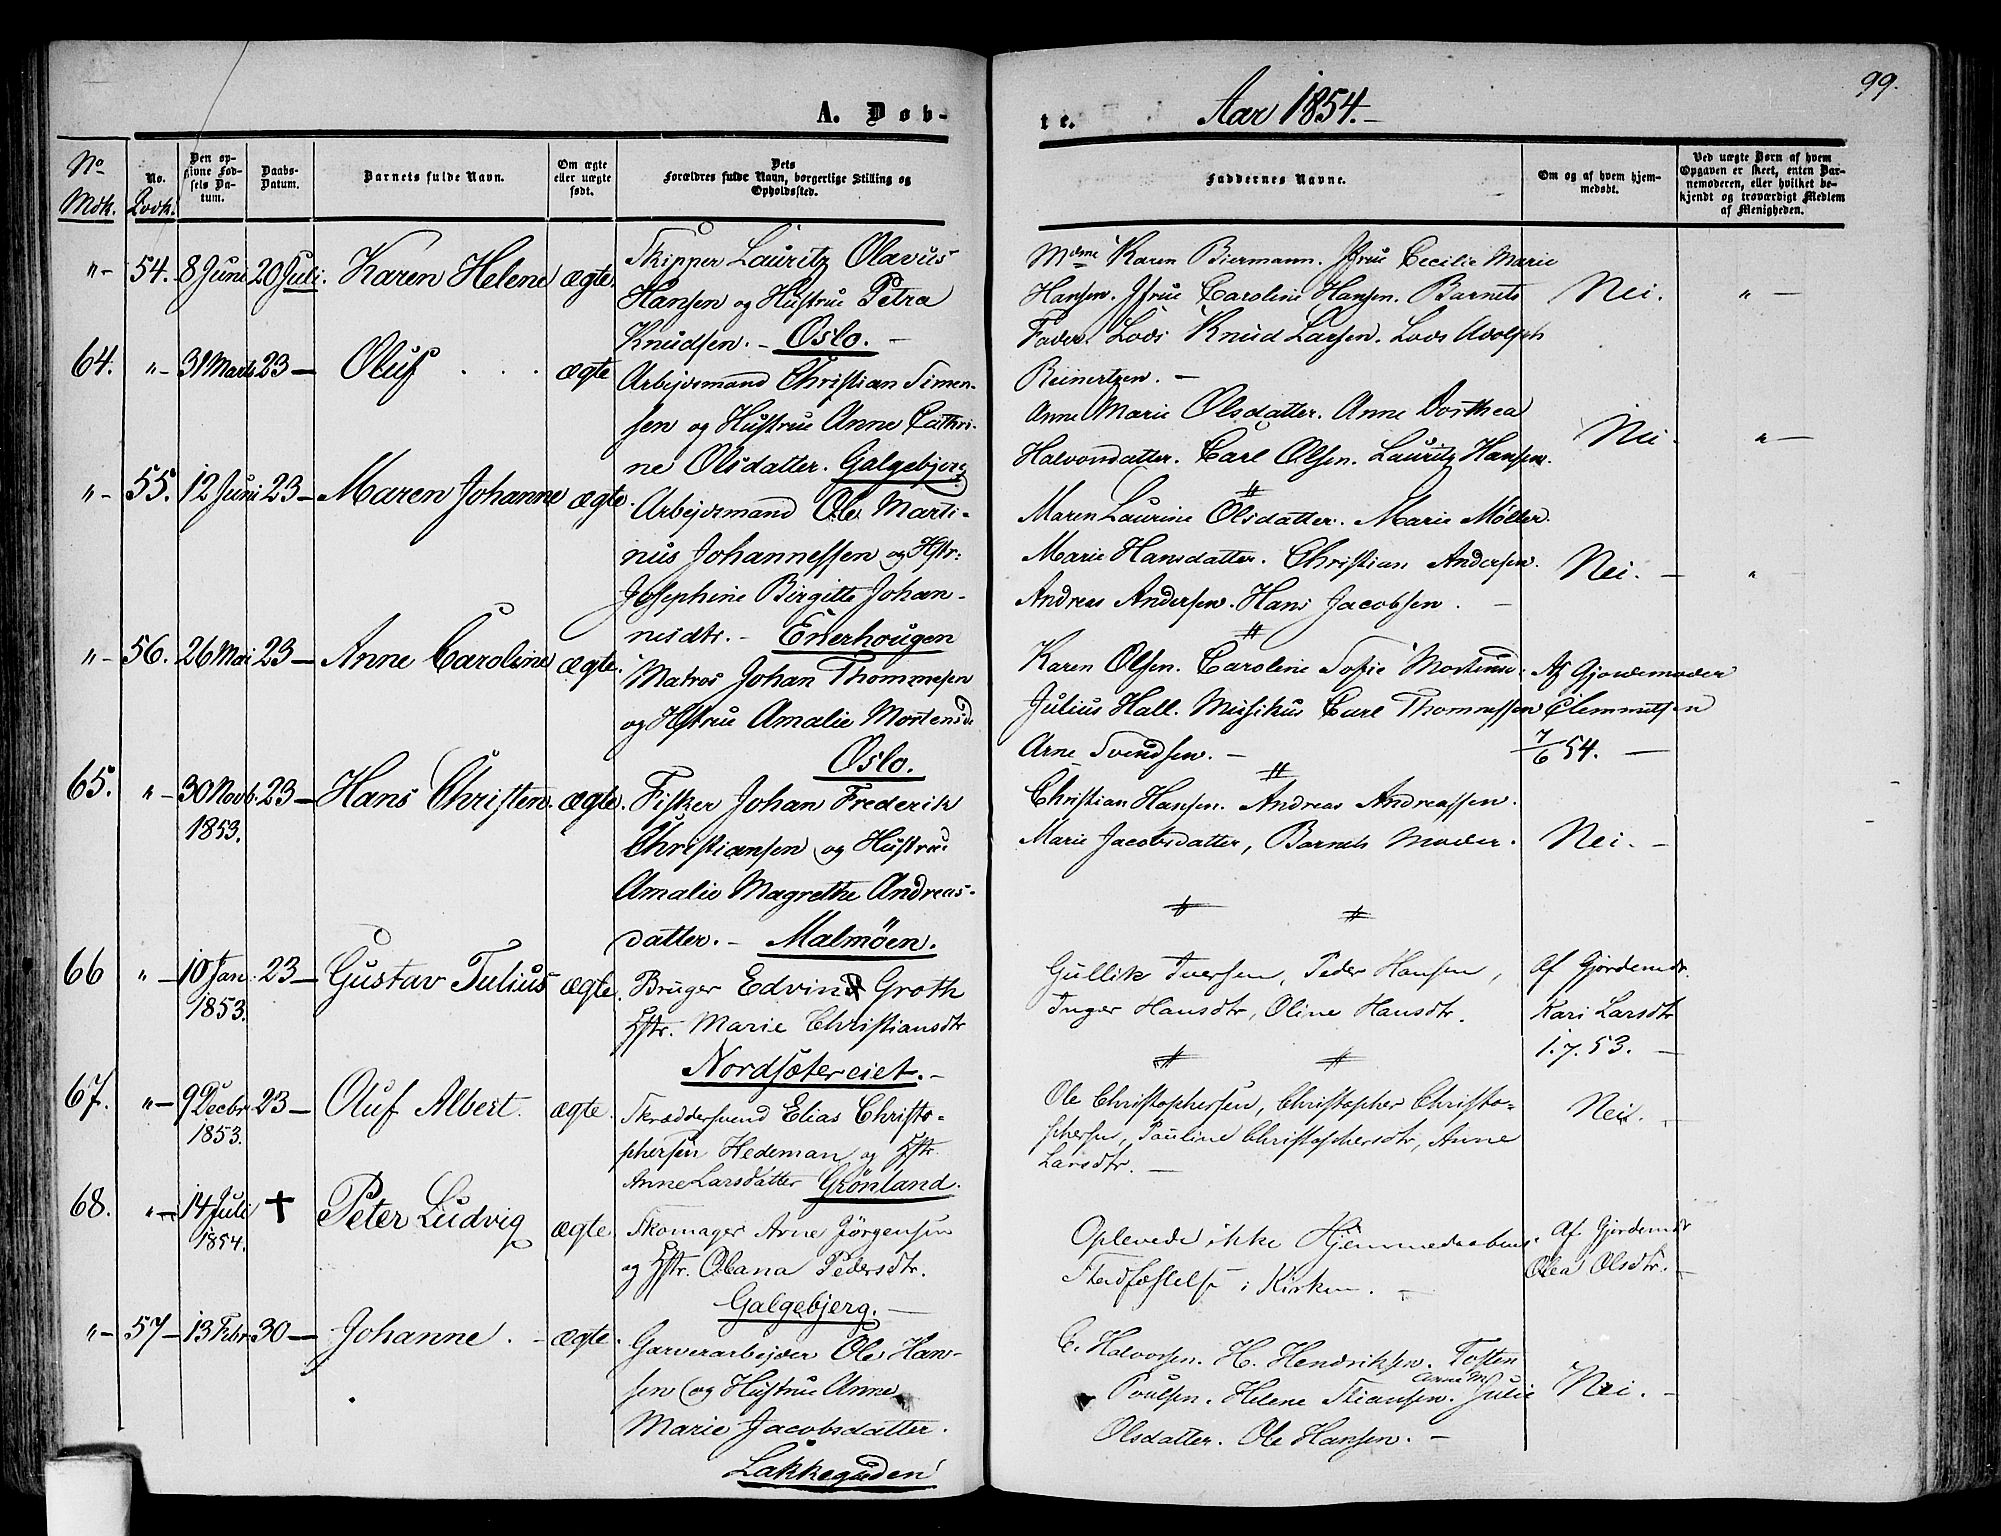 99.
A. Døb-
te.
Aar 1854.-
No Mdk.
No. Qvdk.
Den opgivne Fødsels Datum.
Daabs-Datum.
Barnets fulde Navn.
Om ægte eller uægte født.
Dets Forældres fulde Navn, borgerlige Stilling og Opholdssted.
Faddernes Navne.
Om og af hvem hjemmedøbt.
Ved uægte Børn af hvem Opgaven er skeet, enten Barnemoderen, eller hvilket bekjendt og troværdigt Medlem af Menigheden.
"- 54. 8 Juni 20 Juli. Karen Helene ægte.
Skipper Lauritz Olavus
Hansen og Hustrue Petra
Knudsen. - Oslo. -
Mdme Karen Biermann. Jfrue Cecilie Marie
Hansen. Jfrue Caroline Hansen. Barnets
Fader. Lods Knud Larsen. Lods Adolph
Reinertzen. -
Nei. " -
64. "- 31 Marts 23 - Oluf . . . ægte
Arbejdsmand Christian Simen-
sen og Hustrue Anne Cathri-
ne Olsdatter. Galgebjerg
Anne Marie Olsdatter. Anne Dorthea
Halvorsdatter. Carl Olsen. Lauritz Hansen.
Nei. " -
"- 55. 12 Juni 23 - Maren Johanne ægte.
Arbejdsmand Ole Marti-
nus Johannessen og Hstr:
Josephine Birgitte Johan-
nesdtr. - Enerhougen
Maren Laurine Olsdatter. Marie Møller.
Marie Hansdatter. Christian Andersen.
Andreas Andersen. Hans Jacobsen. -
Nei. - " -
"- 56. 26 Mai 23 - Anne Caroline ægte.
Matros Johan Thommesen
og Hstrue Amalie Mortensd
Oslo.
Karen Olsen. Caroline Sofie Mortensd.
Julius Hall. Musikus Carl Thommessen
Arne Svendsen. -
Af Gjordemoder
Clemmetsen
7/6 54. -
65. "- 30 Novb. 23 - Hans Christen. ægte.
1853.
Fisker Johan Frederik
Christiansen og Hustrue
Amalie Magrethe Andreas-
datter. - Malmøen.
Christian Hansen. Andreas Andreassen.
Marie Jacobsdatter, Barnets Moder.
Nei. -
66 "- 10 Jan. 23 - Gustav Julius ægte.
1853.
Bruger Edvin Groth
Hstr. Marie Christiansdtr
Nordsætereiet. -
Gullik Iversen, Peder Hansen,
Inger Hansdtr, Oline Hansdtr.
Af Gjordemdr.
Kari Larsdtr
1.7.53. -
67. "- 9 Decbr 23 - Oluf Albert. ægte.
1853.
Skræddersvend Elias Christo-
phersen Hedeman og Hstr.
Anne Larsdatter Grönland.
Ole Christophersen, Christopher Christo-
phersen, Pauline Christophersdtr, Anne
Larsdtr. -
Nei. -
68. "- 14 Juli † Peter Ludvig ægte.
1854.
Skomager Arne Jörgensen
og Hstr. Olana Pedersdtr.
Galgebjerg. -
Oplevede ikke Hjemmedaabens
Stadfæstelse i Kirken. -
Af Gjordemdr
Olea Olsdtr. -
"- 57 - 13 Febr. 30 - Johanne. - ægte.
Garverarbejder Ole Han-
sen og Hustrue Anne
Marie Jacobsdatter.
Lakkegaden
C. Halvorsen. H. Hendriksen. Tosten
Poulsen. Helene Stiansen. Julie
Olsdatter. Ole Hansen. -
Nei. -